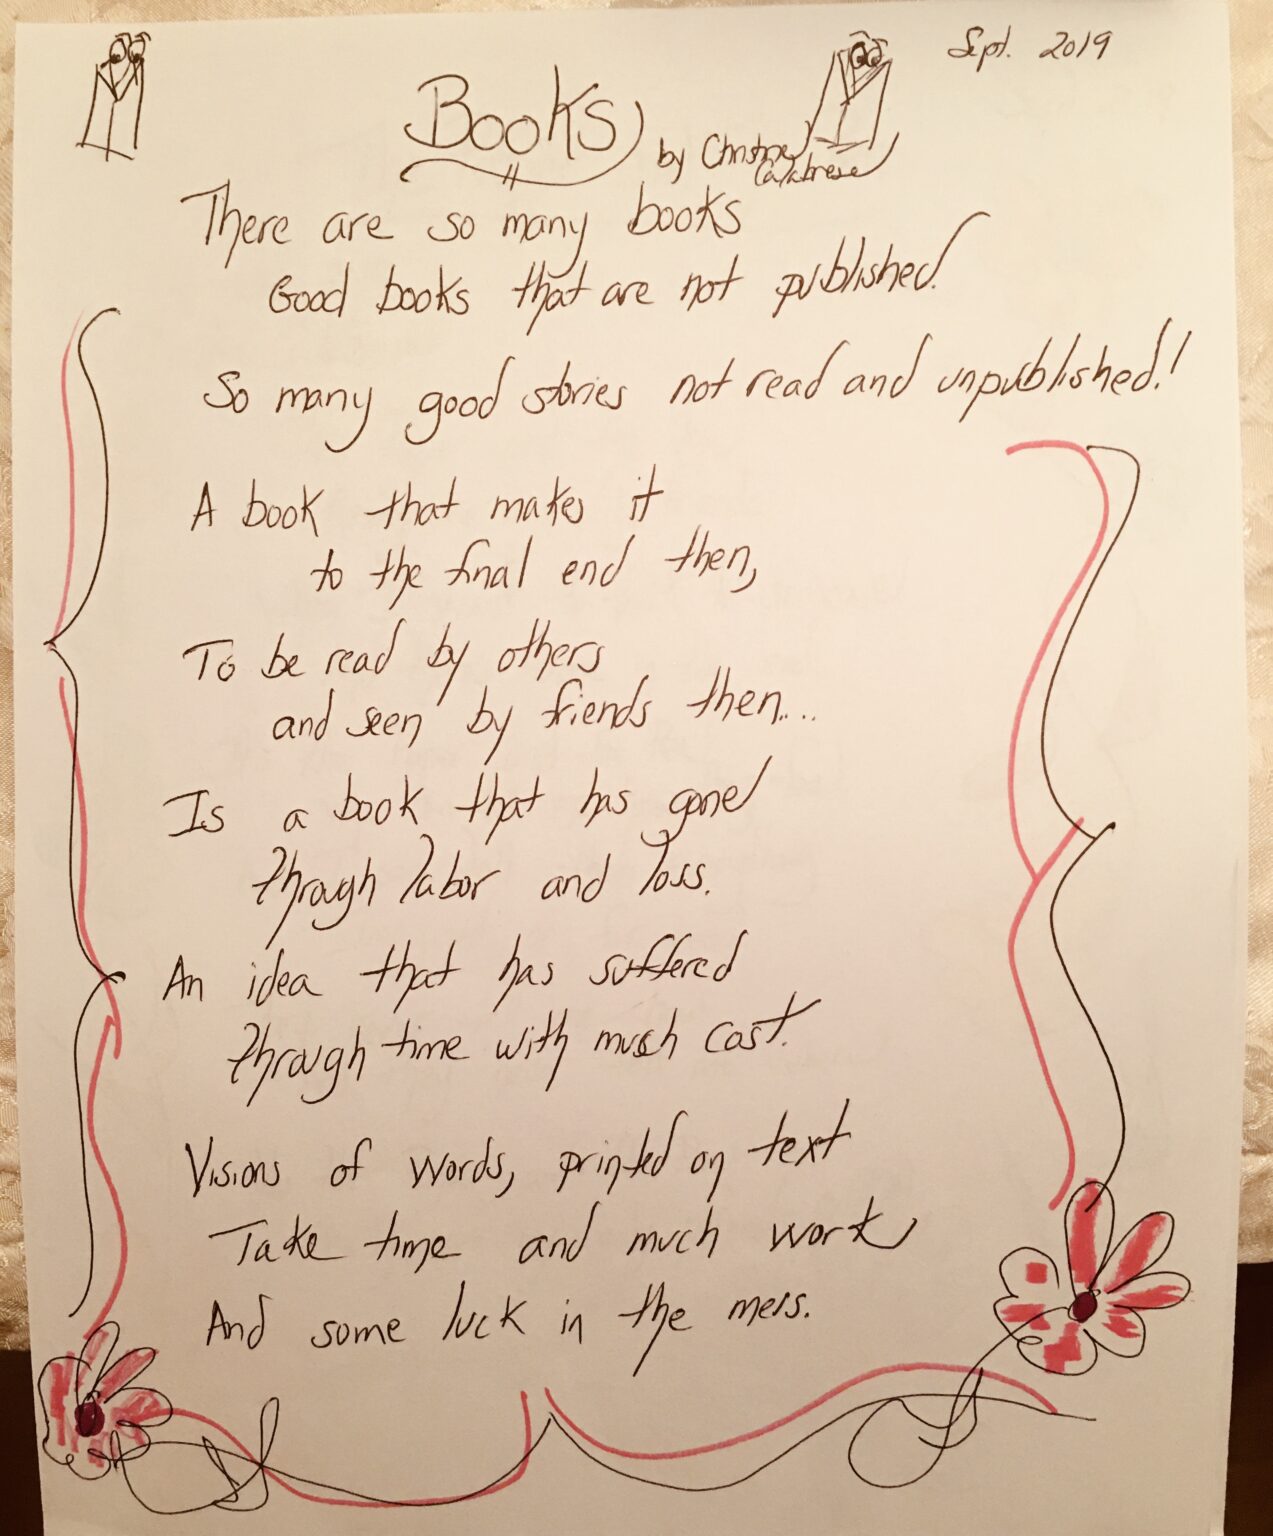 Sept. 2019
Books
by Christine
Calabrese
There are so many books
Good books that are not published.
So many good stories not read and unpublished!
A book that makes it
to the final end then,
To be read by others
and seen by friends then....
Is a book that has gone
through labor and loss.
An idea that has suffered
through time with much cost.
Visions of words, printed on text
Take time and much work
And some luck in the mess.